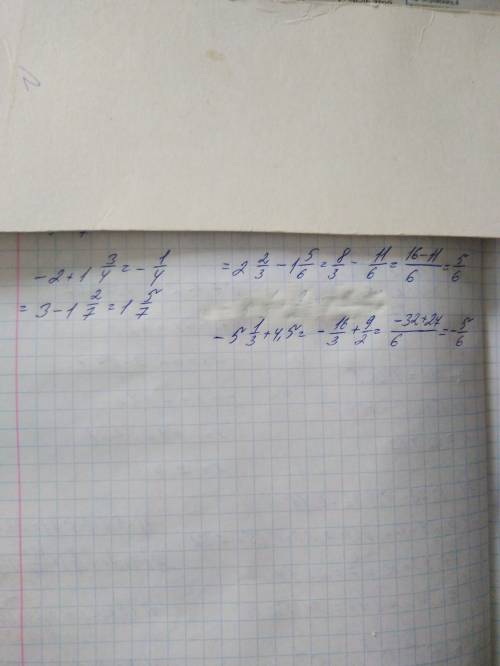 -2+1 3/4 = -1/4
= 3-1 2/7 = 1 5/7
= 2 2/3 - 1 5/6 = 8/3 - 11/6 = 16-11/6 = 5/6
-5 1/3 + 4,5 = -16/3 + 9/2 = -32+27/6 = -5/6